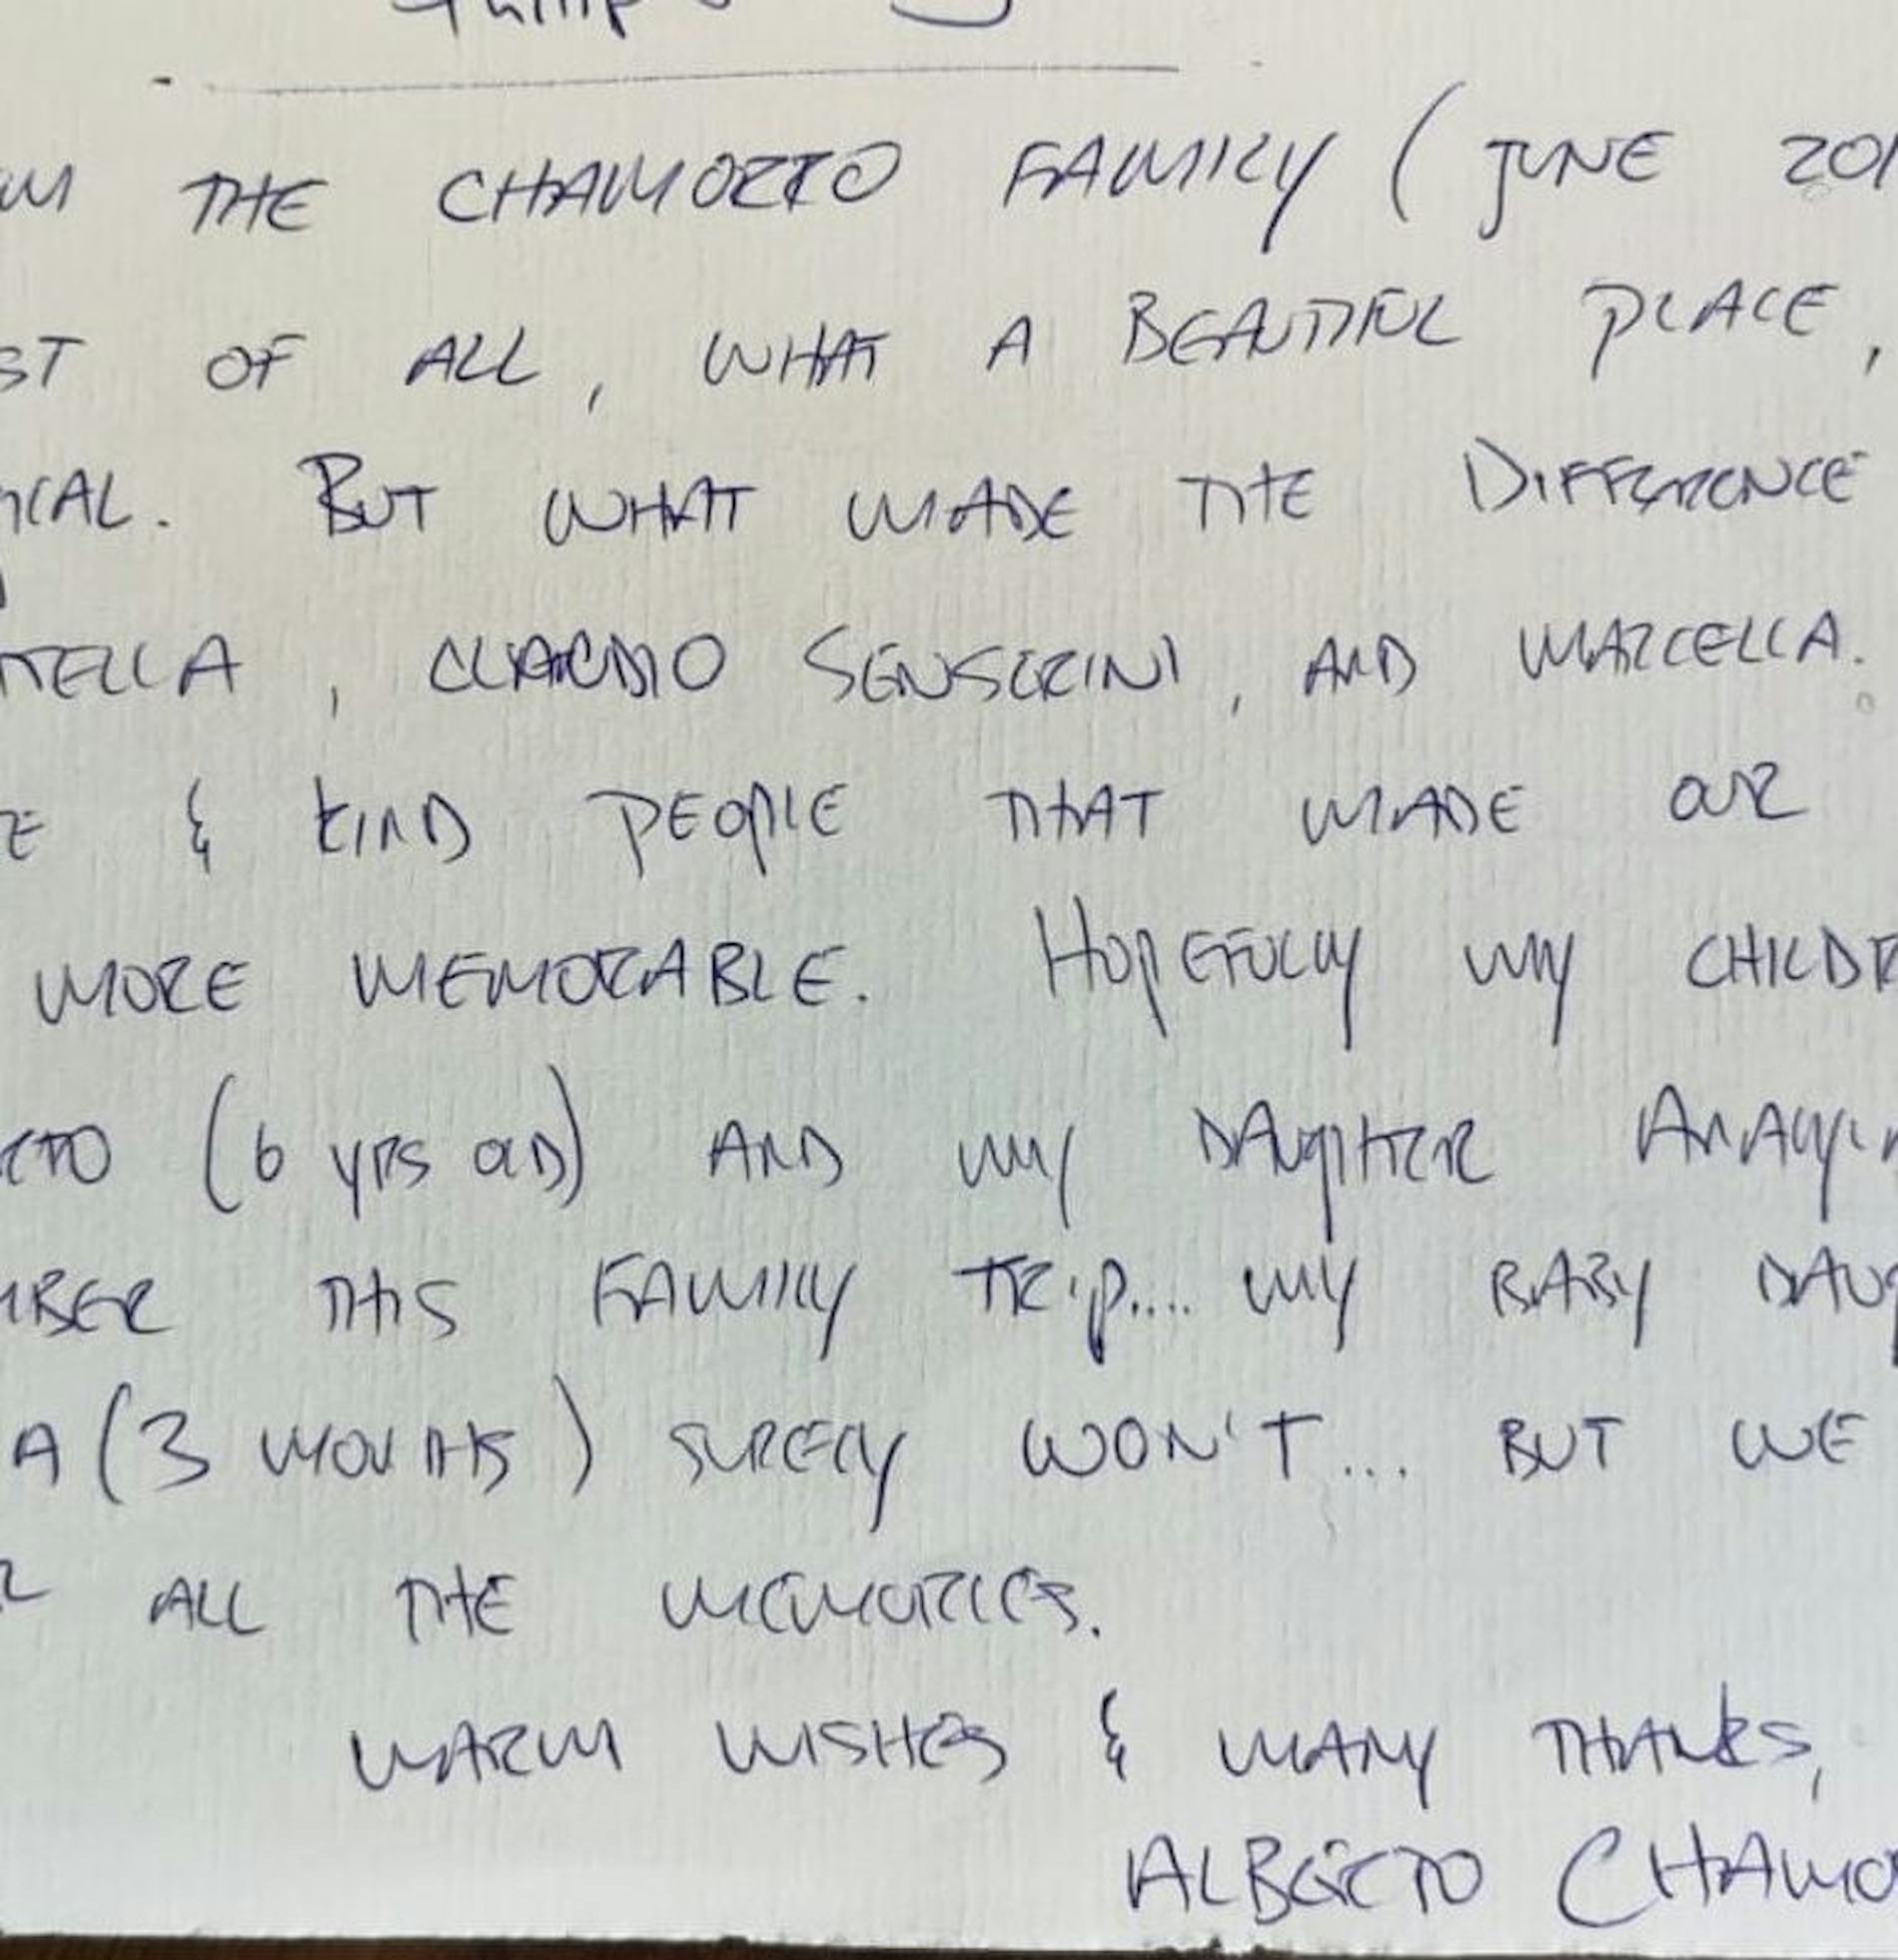 THE CHAMORRO FAMILY (JUNE 201
ST OF ALL, WHAT A BEAUTIFUL PLACE,
ICAL. BUT WHAT MADE THE DIFFERENCE
TELLA, CLAUDIO SENSERINI, AND MARCELLA.
E & KIND PEOPLE THAT MADE OUR
MORE MEMORABLE. HOPEFULLY MY CHILDR
RTO (6 YRS OLD) AND MY DAUGHTER
MBER THIS FAMILY TRIP.... MY BABY DAUG
A (3 MONTHS) SURELY WON'T... BUT WE
R ALL THE MEMORIES.
WARM WISHES & MANY THANKS,
ALBERTO CHAMO